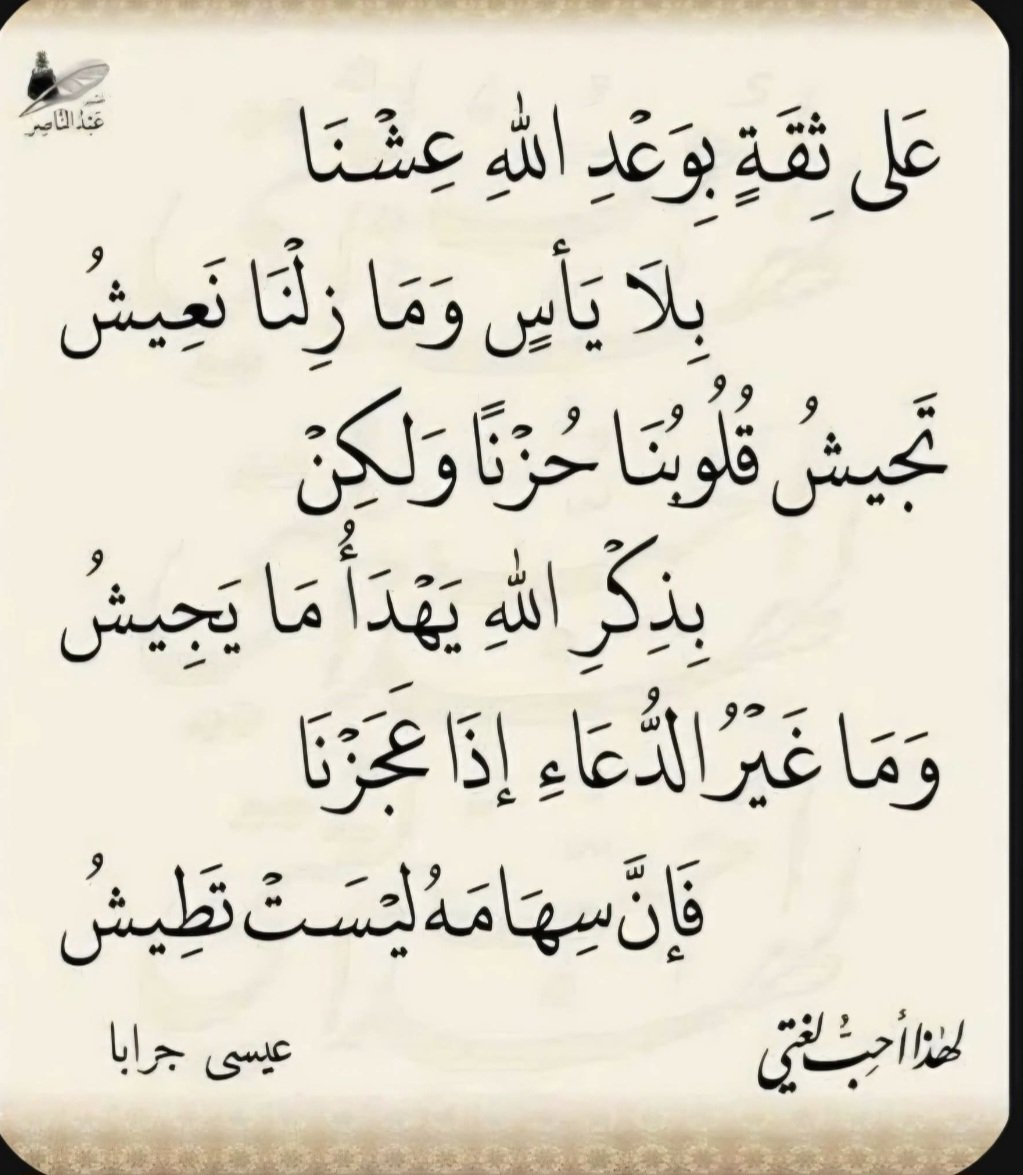 عَبْدُ النَّاصِر
عَلى ثِقَةٍ بِوَعْدِ اللهِ عِشْنَا
بِلَا يَأسٍ وَمَا زِلْنَا نَعِيشُ
تَجيشُ قُلُوبُنَا حُزْنًا وَلَكِنْ
بِذِكْرِ اللهِ يَهْدَأُ مَا يَجِيشُ
وَمَا غَيْرُ الدُّعَاءِ إِذَا عَجَزْنَا
فَإِنَّ سِهَامَهُ لَيْسَتْ تَطِيشُ
لهٰذا أحِبُّ لغتي
عيسى جرابا